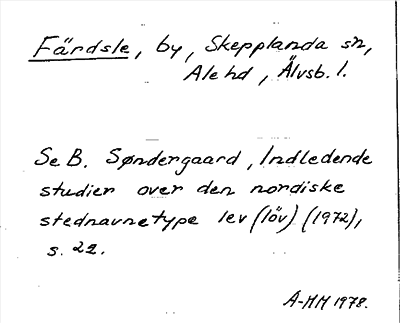 Färdsle, by, Skepplanda sn,
Ale hd, Älvsb. l.
Se B. Søndergaard, Indledende
studier over den nordiske
stednavnetype lev (löv) (1972),
s. 22.
A-MH 1978.